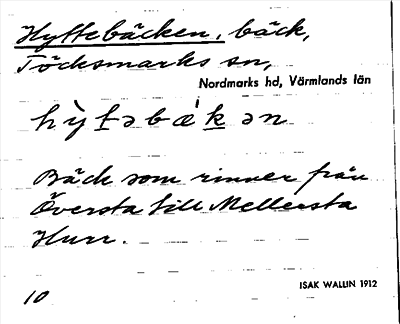 Hyttebäcken, bäck,
Töcksmarks sn,
Nordmarks hd, Värmlands län
hỳt̲əbæ̍k̲ən
Bäck som rinner från
Översta till Mellersta
Hurr.
ISAK WALLIN 1912
10